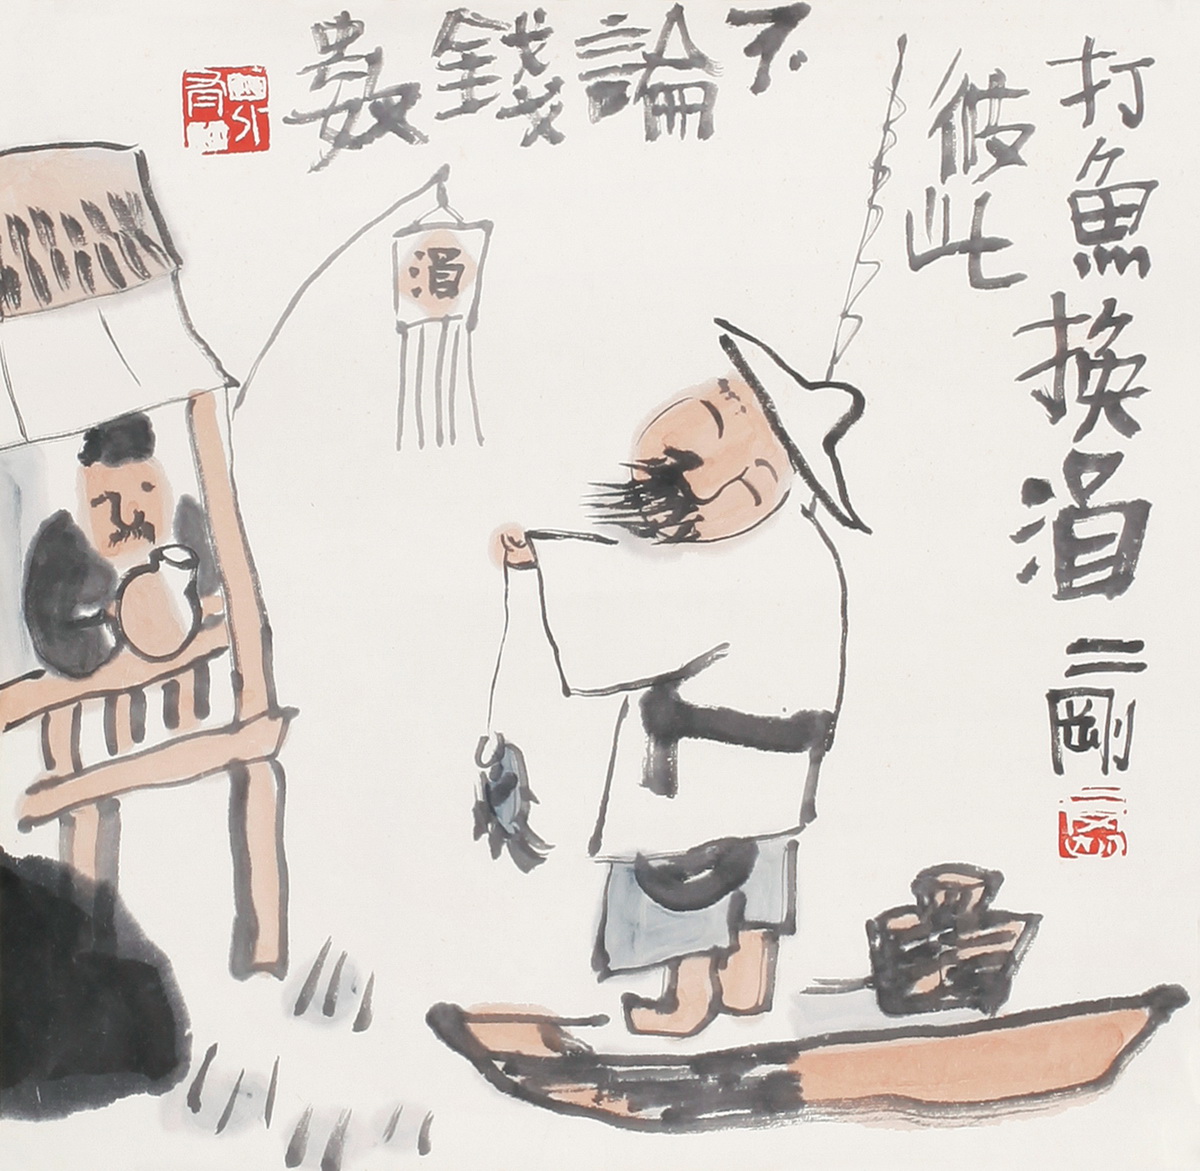 打魚換酒
彼此
不論錢數
二剛
酒